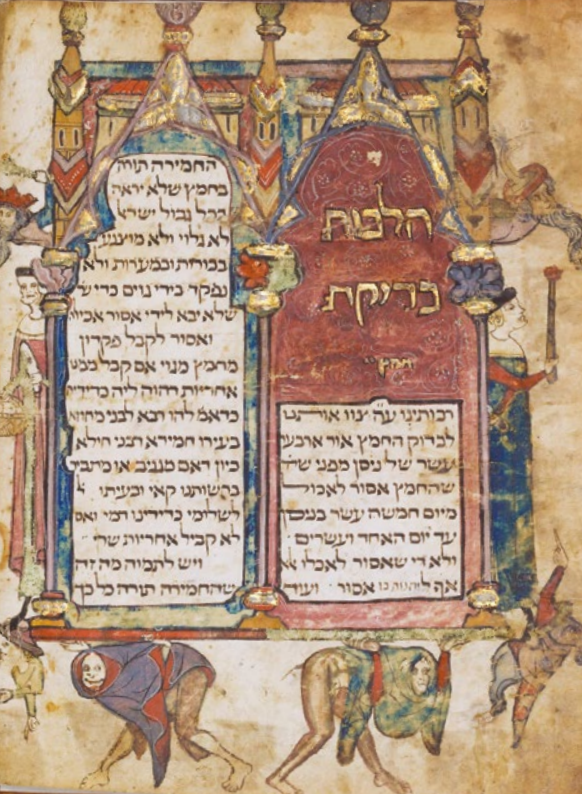 הלכות
בדיקת
חמץ
רבותינו ע״ה צוו אותנו
לבדוק החמץ אור ארבעה
עשר של ניסן מפני
שהחמץ אסור לאכול
מיום חמשה עשר בניסן
עד יום האחד ועשרים
ולא די שאסור לאכלו
אף ליהנות בו אסור ועוד
החמירה תורה
בחמץ שלא יראה
בכל גבול ישרא
לא גלוי ולא מוצנע
בבורות ובמערות ולא
נפקד בידי גוים כדי ש
שלא יבא לידי אסור
ואסור לקבל פקדון
מחמץ מגוי אם קבל
אחריות דהוה ליה כדידיה
כדאמ׳ להו רבא לבני מחוזא
בעירו חמירא דבני חילא
כיון דאם מגניב או
ברשותנו קאי ובעיתו
לשלומי כדידנו דמי ואם
לא קביל אחריות שרי
ויש לתמוה מה זה
שהחמירה תורה כל כך